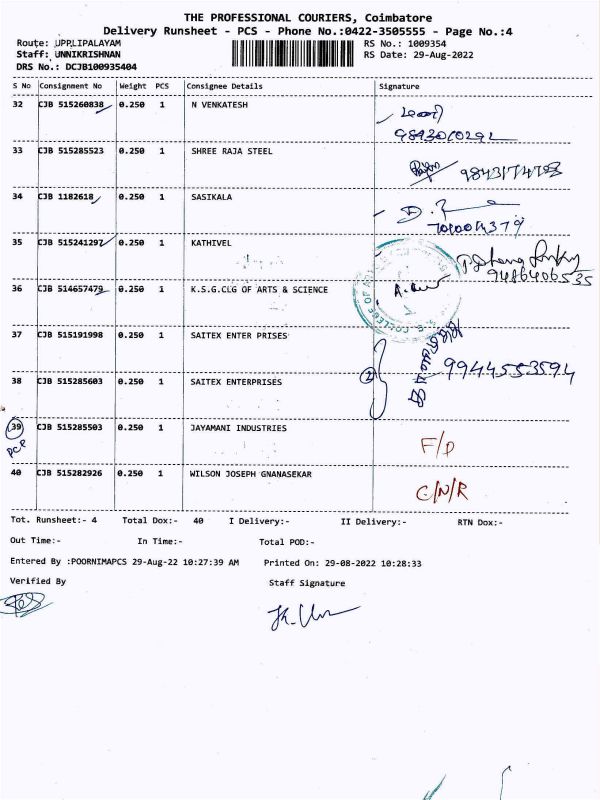 THE PROFESSIONAL COURIERS, Coimbatore
Delivery Runsheet - PCS - Phone No.:0422-3505555 - Page No.:4
Route: UPPLIPALAYAM RS No.: 1009354
Staff: UNNIKRISHNAN RS Date: 29-Aug-2022
DRS No.: DCJB100935404
S No Consignment No Weight PCS Consignee Details Signature
32 CJB 515260838 0.250 1 N VENKATESH
33 CJB 515285523 0.250 1 SHREE RAJA STEEL
34 CJB 1182618 0.250 1 SASIKALA
35 CJB 515241297 0.250 1 KATHIVEL
9486406535
36 CJB 514657479 0.250 1 K.S.G.CLG OF ARTS & SCIENCE
37 CJB 515191998 0.250 1 SAITEX ENTER PRISES
② 9944553594
38 CJB 515285603 0.250 1 SAITEX ENTERPRISES
39 CJB 515285503 0.250 1 JAYAMANI INDUSTRIES F/D
40 CJB 515282926 0.250 1 WILSON JOSEPH GNANASEKAR C/N/R
Tot. Runsheet:- 4 Total Dox:- 40 I Delivery:- II Delivery:- RTN Dox:-
Out Time:- In Time:- Total POD:-
Entered By :POORNIMAPCS 29-Aug-22 10:27:39 AM Printed On: 29-08-2022 10:28:33
Verified By Staff Signature